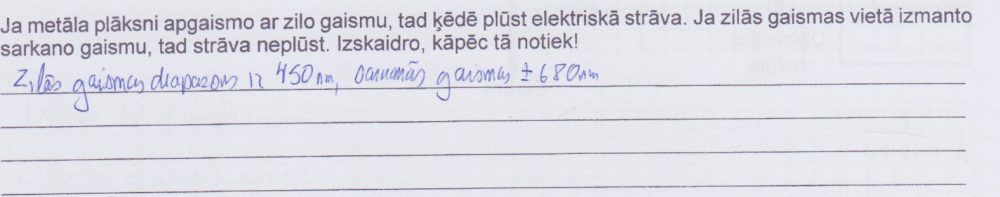 Ja metāla plāksni apgaismo ar zilo gaismu, tad ķēdē plūst elektriskā strāva. Ja zilās gaismas vietā izmanto
sarkano gaismu, tad strāva neplūst. Izskaidro, kāpēc tā notiek!
Zilās gaismas diapazons ir 450nm, sarkanās gaismas ± 680nm